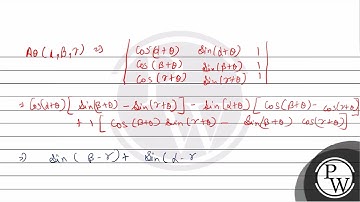 Aθ(α,β,r) => | cos(α+θ) sin(α+θ) 1 |
| cos(β+θ) sin(β+θ) 1 |
| cos(r+θ) sin(r+θ) 1 |
=> cos(α+θ) [ sin(β+θ) - sin(r+θ) ] - sin(α+θ) [ cos(β+θ) - cos(r+θ) ]
+ 1 [ cos(β+θ) sin(r+θ) - sin(β+θ) cos(r+θ) ]
=> sin(β-r) + sin(α-r
P
W